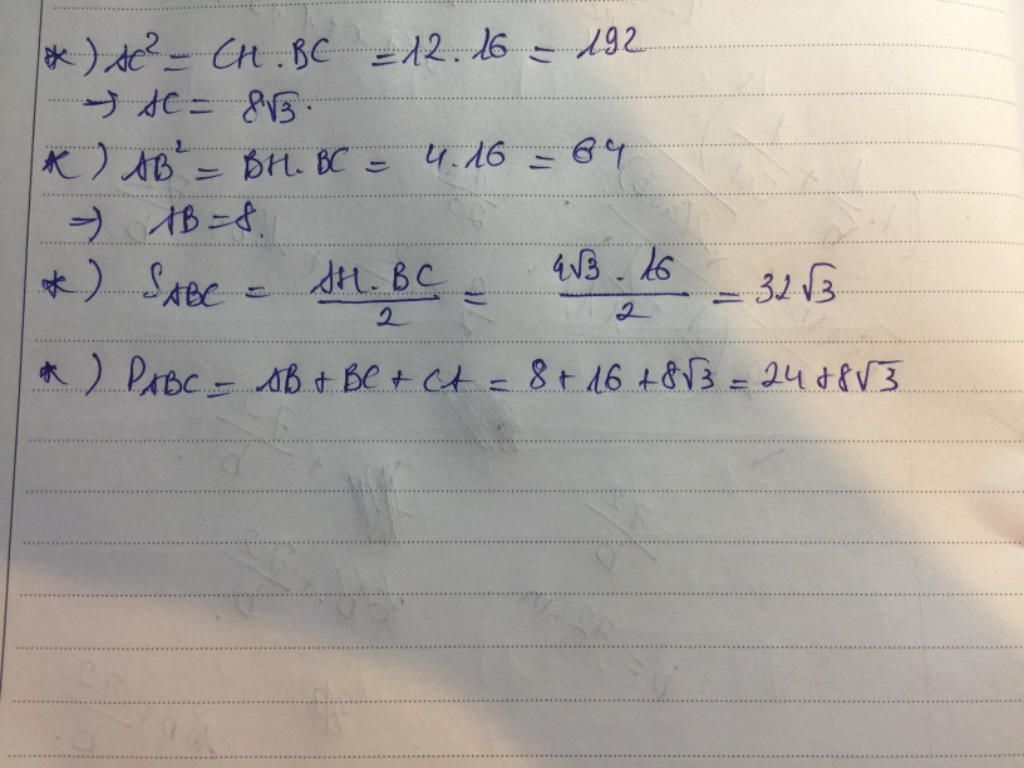 *) AC² = CH . BC = 12 . 16 = 192
→ AC = 8√3.
*) AB² = BH . BC = 4 . 16 = 64
⇒ AB = 8.
*) S_ABC = (AH . BC)/2 = (4√3 . 16)/2 = 32√3
*) P_ABC = AB + BC + CA = 8 + 16 + 8√3 = 24 + 8√3